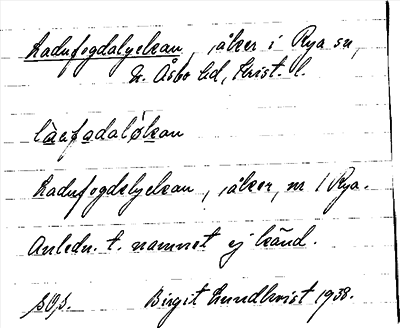 Ladufogdalyckan, åker i Rya sn,
N. Åsbo hd, Krist. l.
làʊfadalỏkan
Ladufogdalyckan, åker, nr 1 Rya.
Anledn. t. namnet ej känd.
Birgit Lundkvist 1938.